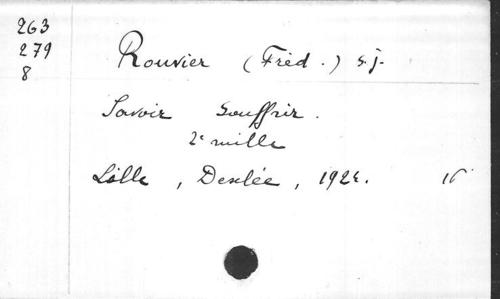 263
279
8
Rouvier (Fréd.) s.j.
Savoir Souffrir.
2e mille
Lille, Desclée, 192